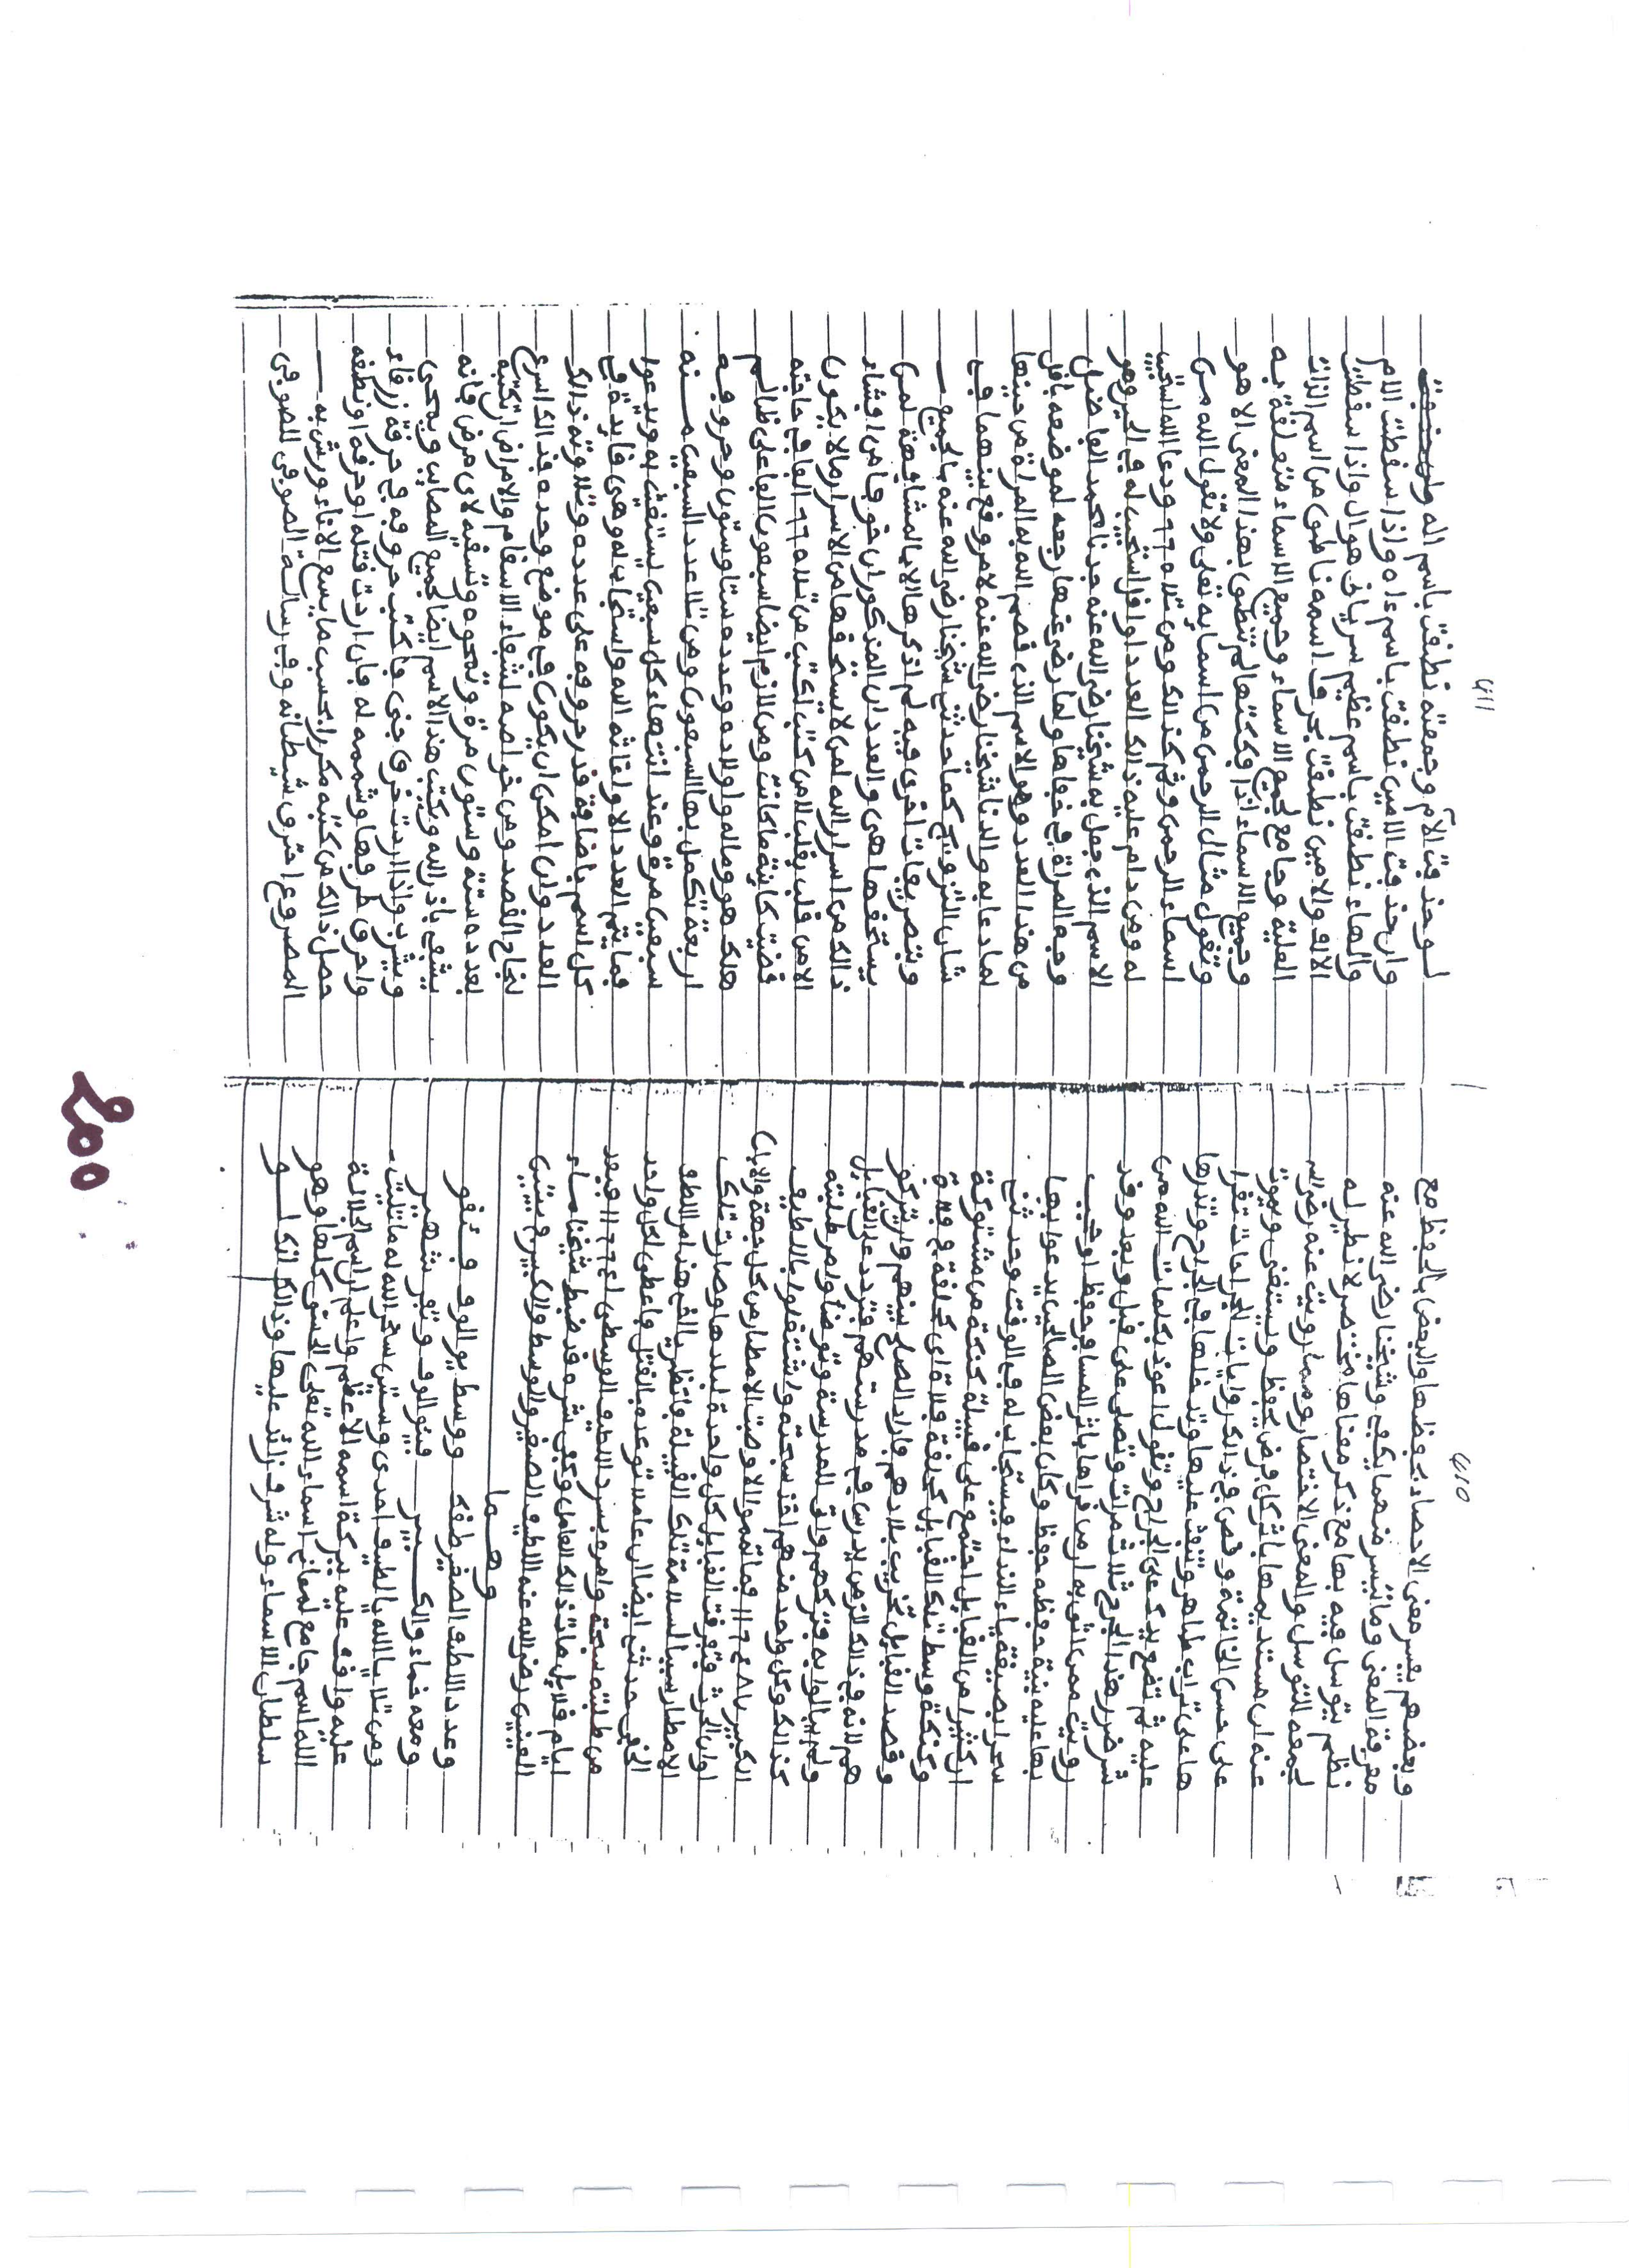 410
وبعضهم يفسر معنى الاحصاء بحفظها والبعض بالحفظ مع
معرفة المعنى وما تيسر منهما يكفى وشيخنا رضى الله عنه
نظم يتوسل فيه بها مع ذكر معناها مختصر لا نظير له
لجمعه التوسل والمعنى الاختصار ومما رويت عنه رضى الله
عنه ان مستديمها باثر كل فرض يحفظ ويستغنى ويموت
على حسن الخاتمة وفى ذالك روايات لجراحات تقرا
ها على تراب طاهر وتنفث عليها وتذر فلها فى الجرح وتذرها
عليه ثم تضع يدك على الجراح وتقول اعوذ بكلمات الله من
شر ضرر هذا الجرح ثلاث مرات وتصلى على قبل وبعد وقد
رويت ممن اثق به ان من قراها باثر المساء وحفظ او كتب
بها عليه بنية حفظه حفظ وكان بعض الصالحين يدعوا بها
سحرا بصيغة ياء النداء فيستجاب له فى الوقت وحدثنى
ان كثيرا من القبايل اجتمع على قبيلة كنكة من مشتوكة
وكنكة وسط تلك القبايل كحلقة فلاة اى كحلقة فى فلاة
وقصد القبايل تخريب بلادهم فاراد الصلح بينهم وان يتركو
هم لانه فى ذالك الزمن يدرس فى مدرستهم فتردد عند القبايل
ولم يبالوا به فتركهم واتى للمدرسة وتوضا وامر طلبته
كذالك وكل واحد منهم اخذ سبحته واشتغلوا باللطيف
الكبير ١٦٦٤١ فما اتموا الا وصبت الامطار من كل جهة والابان
اوان الحرث فتفرقت القبايل كل واحدة لبلدها وصارت تلك
الامطار سببا لسلامة تلك القبيلة فانظر يا اخى هذا من اللطف
الخفى حدثنى ايضا ان عاملا توعده بالقتل فاعطى لكل واحد
من طلبته سبحة وامر بسرد اللطيف الوسطى ١٦٦٤ فبعد
ايام قلايل مات ذالك العامل وكفى شره وقد ضبط شيخنا ماء
العينين رضى الله عنه اللطيف الصغير والوسط والكبير فى بيتين
وهما
وعدد اللطف الصغير طفك ووسط يوالوف فتفو
ومعه ضاء والكبير فيتوالوف وتبر شهير
ومن تلا يا الله يا لطيف احدى وستين سخر الله له ما تليت
عليه وافق عليه ببركة اسمه الاعظم واعلم ان اسم الجلالة
الله اسم جامع لمعانى اسماء الله تعلى الحسنى كلها وهو
سلطان الاسماء وله شرف زائد عليها وذالك انك لو
411
لو حذفت الام وجمعته نطقت باسم اله وان حذفت
وان حذفت الامين نطقت باسم ءاه واذا سقطت الام
والهاء نطقت باسم عظيم سريانى هو ال واذا سقطت
الالف والامين نطقت بحرف اسمه ناطق من اسم الذات
العلية وجامع لجميع الاسماء وجميع الاسماء متعلقة به
وجميع الاسماء اذا فككتها لم تنطق بهذا المعنى الا هو
وتقول مثال الرحمن من اسمايه تعلى ولا تقول الله من
اسماء الرحمن وثم كذالك ومن تلاه ٦٦ ودعا الله استجيب
له ومن دام عليه ذالك العدد او اقل استجيب له فى الخير وهو
الاسم الذى جعل به شيخنا رضى الله عنه جدنا محمد الفاضل
وجه المراة فى خفاها ولما رضى عنها رجعه لموضعه باقل
من هذا العدد وهو الاسم الذى قصم الله به المراة من حينها
لما دعا به والدنا شيخنا رضى الله عنه لامر وقع بينهما فى
شان التزويج كما حدثنى شيخنا رضى الله عنه بالجميع
وبتصريفات اخرى فيه لم اذكرها الا بالمشافهة لمن
يستحقها هى والعددان المذكوران خوفا من افشاء
ذالك من اسرار الله لمن لا يستحقها من الاسرار ما لا يكون
الا من قلب بقلب لا من كتب لكتب من تلاه ٦٦ الفا فى حاجته
قضيت كاينة ما كانت ومن لازم ايضا سبعون الفا على ظالم
هلك هو وماله واولاده وعدده ستا وستون وحروفه
اربعة تكمل بها السبعون ومن تلا عدد السبعين منه
سبعين مرة وعند انتهاء كل سبعين يستغيث به ويدعوا
فما يتم العدد الا واغاثه الله واستجاب له وهى فايدة فى
كل اسم ياضافة قدر حروفه على عدده وتلاوته ذالك
العدد وان امكن ان يكون فى موضع وحده فذالك اسرع
لنجاح القصد ومن خواصه لشفاء الاسقام والامراض ان تكتبه
بعدده ستة وستون مرة وتمحوه وتسقيه لاى مرض فانه
يشفى باذن الله ويكتب هذا الاسم ايضا لجميع المصايب ويمحى
ويشرب واذا اردت حرق جنى فاكتب حروفه فى خرقة زرقاء
واحرق طرفها وشممه له فان اردت قتله او حرقه او نطقه
حصل ذالك من كتبه مكررا بحسب ما يسع الاناء ورش به
المصروع احترق شيطانه وفى رسالة الصوفى للصوفى
200